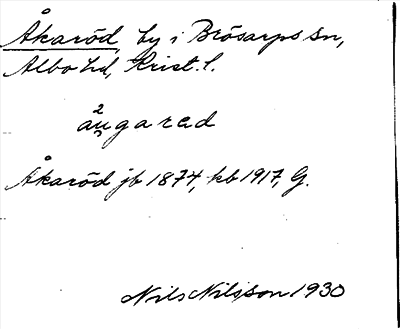 Åkaröd, by i Brösarps sn,
Albo hd, Krist. l.
2
åu̯garad
Åkaröd jb 1874, kb 1917, G.
Nils Nilsson 1930